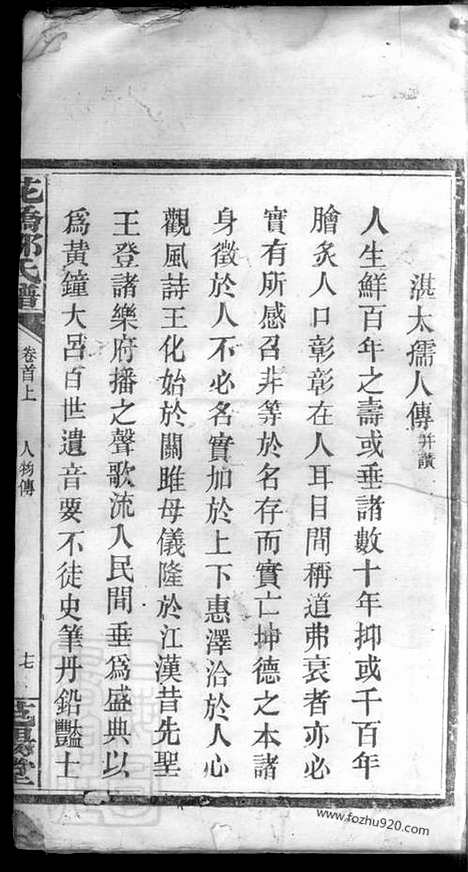 湛太孺人傳并讚
人生鮮百年之壽或垂諸數十年抑或千百年
膾炙人口彰彰在人耳目間稱道弗衰者亦必
實有所感召非等於名存而實亡坤德之本諸
身徵於人不必名實加於上下惠澤洽於人心
觀風詩王化始於關雎母儀隆於江漢昔先聖
王登諸樂府播之聲歌流入民間垂爲盛典以
爲黃鐘大呂百世遺音要不徒史筆丹鉛豔士
花橋邹氏譜
卷首上
人物傳
七
堂
www.fozhu920.com